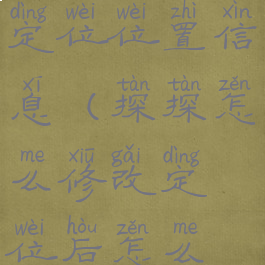 dìng wèi wèi zhì xìn
定位位置信
xī tàn tàn zěn
息（探探怎
me xiū gǎi dìng
么修改定
wèi hòu zěn me
位后怎么